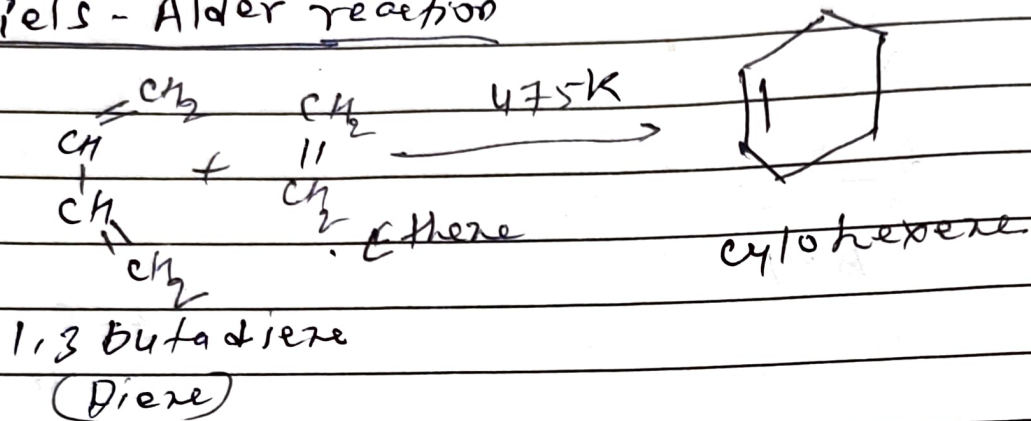 iels - Alder reaction
CH2 CH2 475K
CH + ||
CH CH2
CH2 Ethene cylohexene
1,3 butadiene
(Diene)